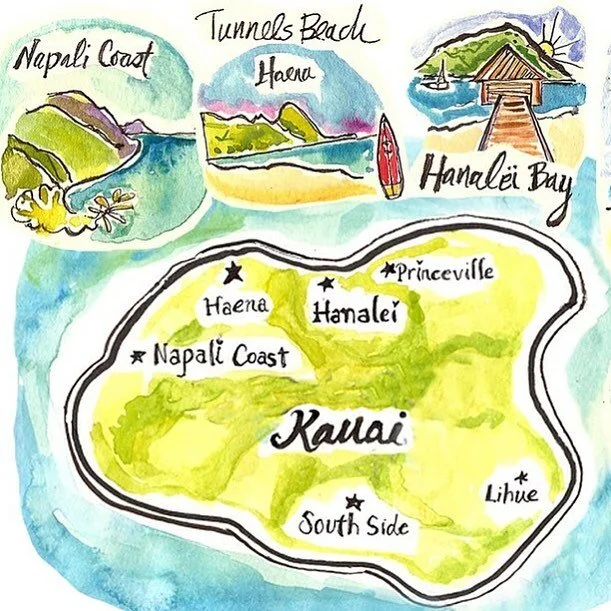 Napali Coast
Tunnels Beach
Haena
Hanalëi Bay
Princeville
Haena
Hanalei
Napali Coast
Kauai
Lihue
South Side